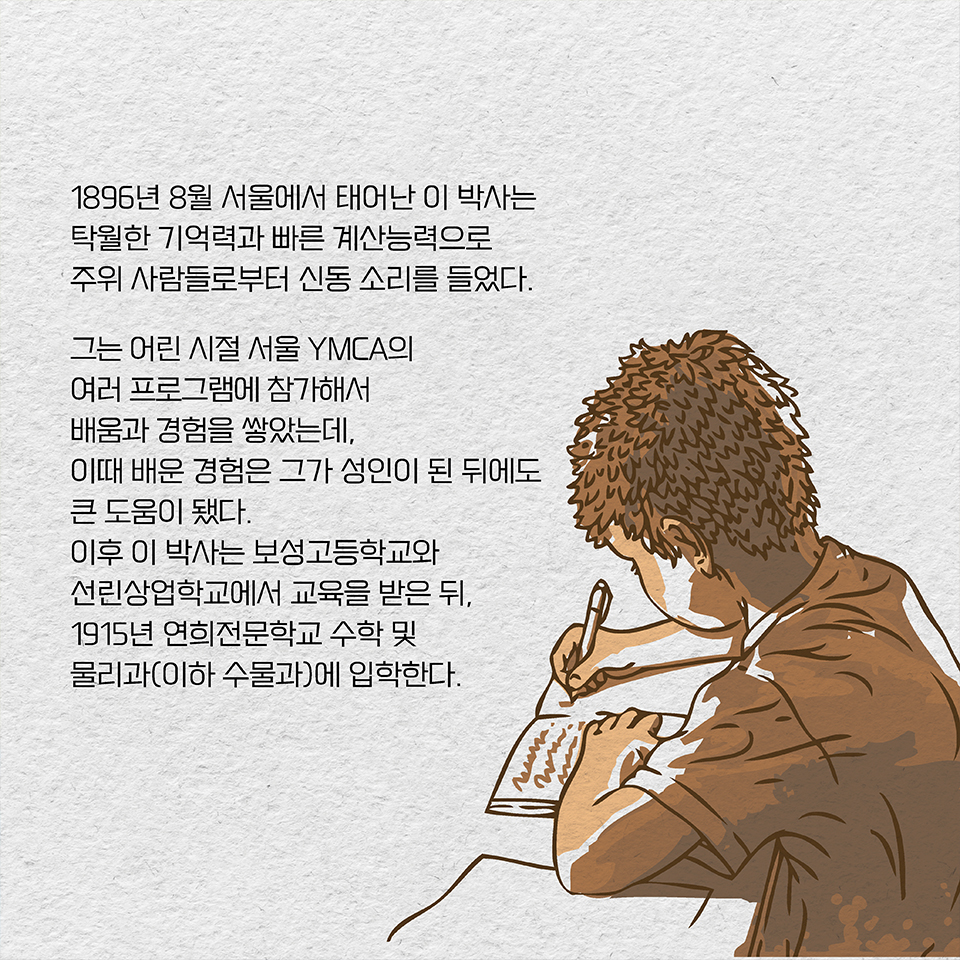 1896년 8월 서울에서 태어난 이 박사는
탁월한 기억력과 빠른 계산능력으로
주위 사람들로부터 신동 소리를 들었다.
그는 어린 시절 서울 YMCA의
여러 프로그램에 참가해서
배움과 경험을 쌓았는데,
이때 배운 경험은 그가 성인이 된 뒤에도
큰 도움이 됐다.
이후 이 박사는 보성고등학교와
선린상업학교에서 교육을 받은 뒤,
1915년 연희전문학교 수학 및
물리과(이하 수물과)에 입학한다.